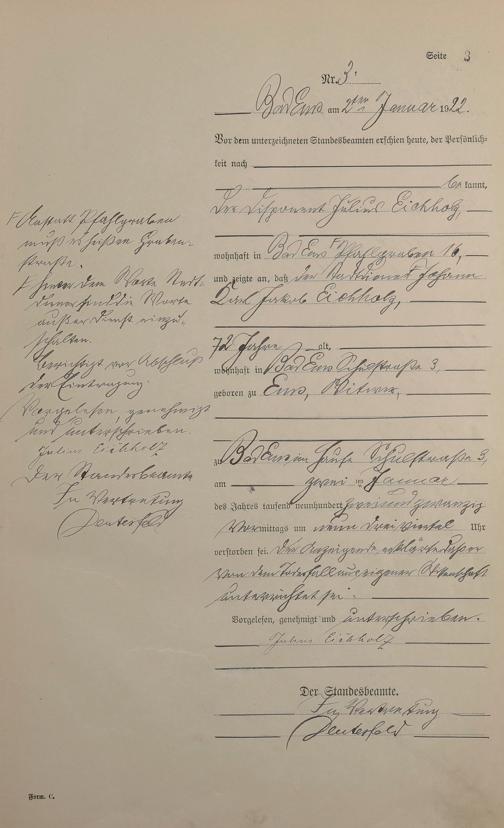 Seite 3
Nr. 3.
Bad Ems am 2ten Januar 1922.
Vor dem unterzeichneten Standesbeamten erschien heute, der Persönlich-
keit nach
be kannt,
Der Disponent Julius Eichholz,
wohnhaft in Bad Ems Pfahlgraben 16,
und zeigte an, daß der Stadtdiener Johann
Carl Jakob Eichholz,
72 Jahre alt,
wohnhaft in Bad Ems Schulstraße 3,
geboren zu Ems, Witwer,
zu Bad Ems, im Hause Schulstraße 3,
am zwei ten Januar
des Jahres tausend neunhundert zweiundzwanzig
Vormittags um neun dreiviertel Uhr
verstorben sei. Der Anzeigende erklärte daß er
von dem Todesfall aus eigener Wissenschaft
unterrichtet sei.
Vorgelesen, genehmigt und unterschrieben.
Julius Eichholz
Der Standesbeamte.
In Vertretung
F Anstatt Pfahlgraben
muß es heißen Graben-
straße.
F hinter dem Worte Stadt-
diener sind die Worte
außer Dienst einzu-
schalten.
Berichtigt vor Abschluß
der Eintragung.
Vorgelesen, genehmigt
und unterschrieben.
Julius Eichholz
Der Standesbeamte
In Vertretung
Form. C.